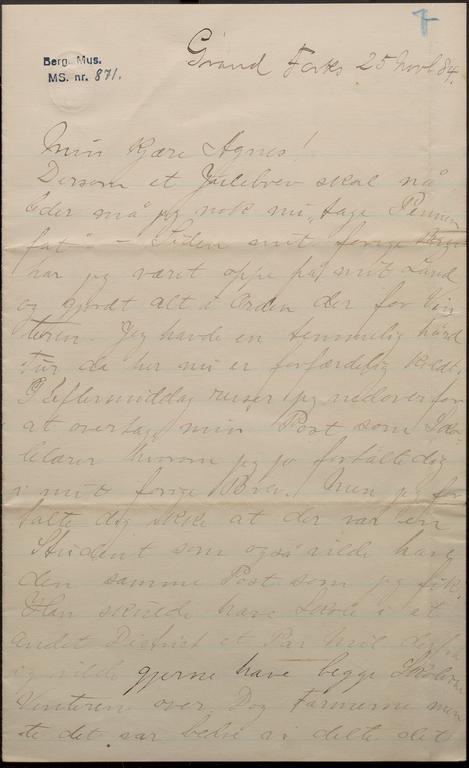 7
Berg. Mus.
MS. nr. 871.
Grand Forks 25 Novb 84.
Min kjære Agnes!
Dersom et Julebrev skal nå
Eder må jeg nok nu "tage Pennen
fat" - Siden mit forige Brev
har jeg været oppe på mit Land
og gjordt alt i Orden der for Vin
teren. Jeg havde en temmelig hård
Tur da her nu er forfærdelig koldt.
I Eftermiddag reiser jeg nedover for
at overtage min Post som Sko
lelærer hvorom jeg jo fortalte dig
i mit forige Brev. Men jeg for
talte dig ikke at der var en
Student som også vilde have
den samme Post som jeg fik.
Han skulde have Skole i et
andet District et Par Mil derfra
og vilde gjerne have begge Skolerne
Vinteren over. Dog Farmerne men
te det var bedre vi delte det